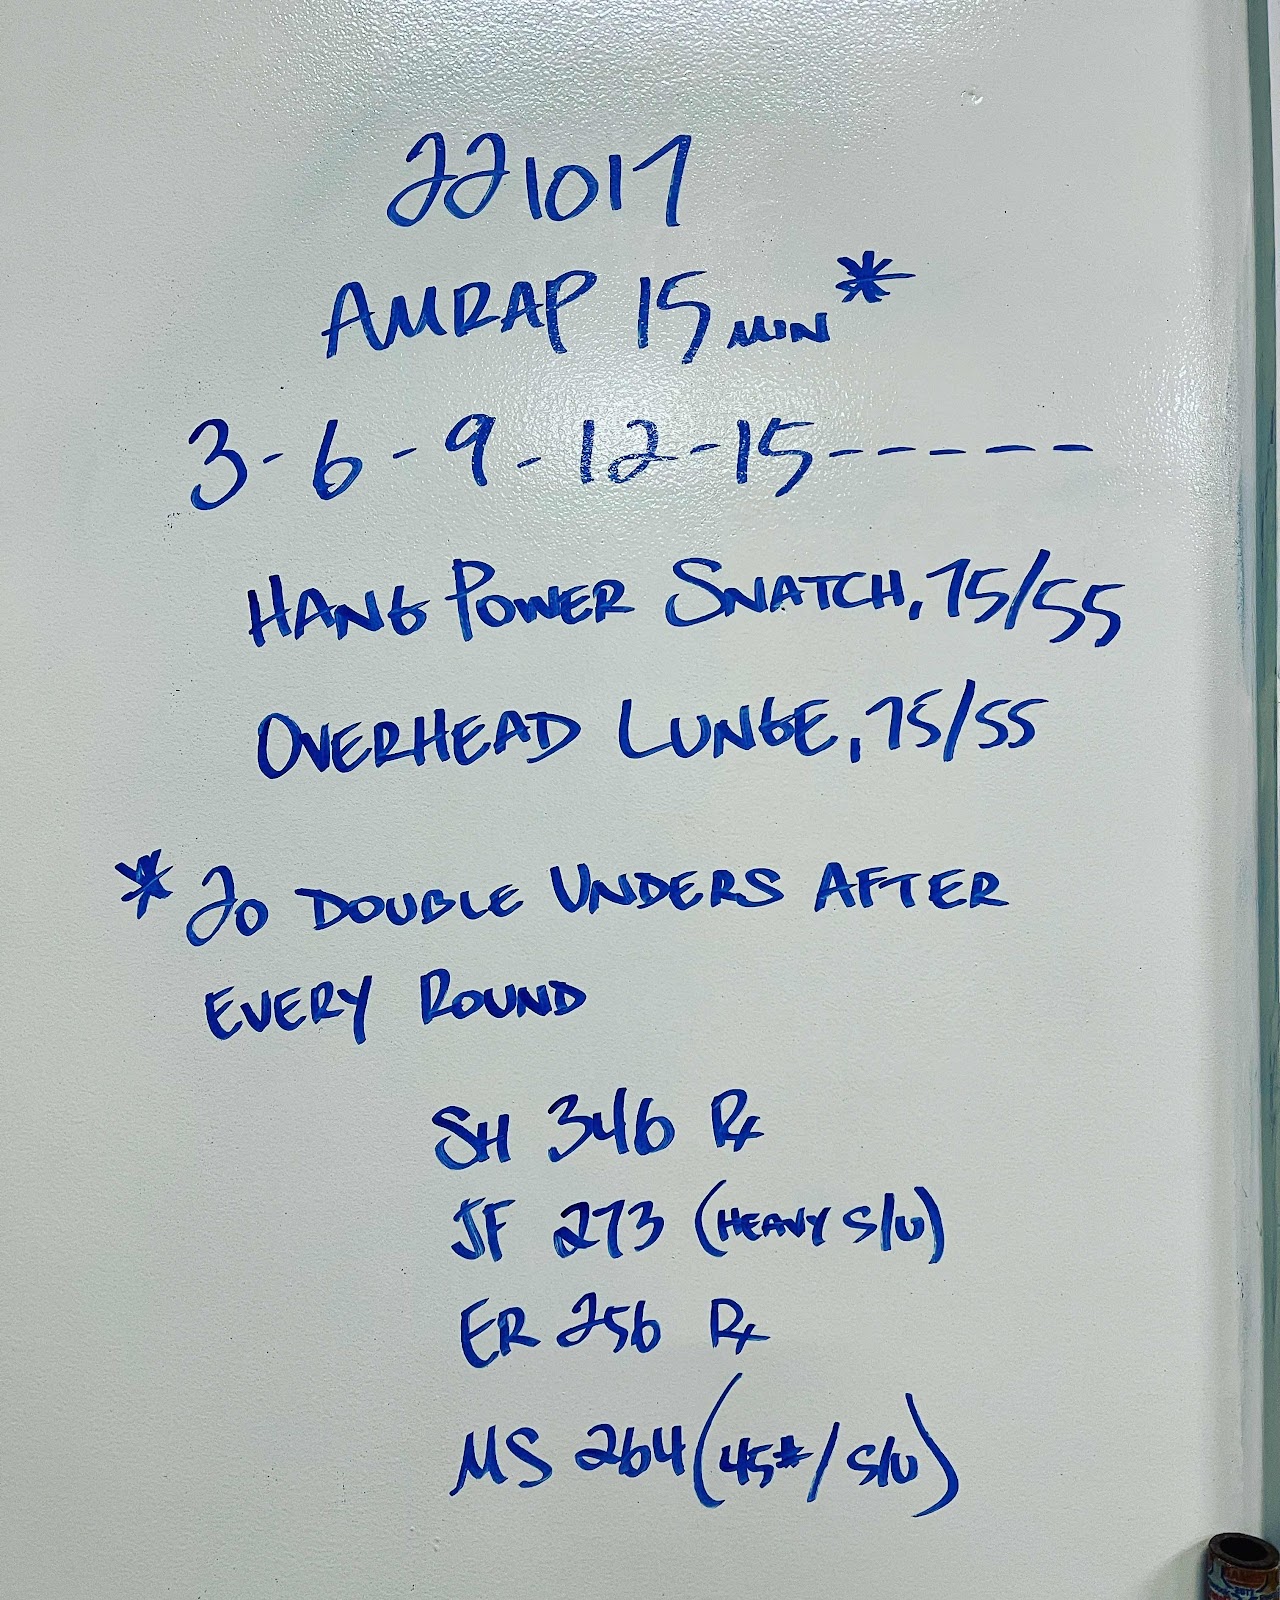 221017
AMRAP 15 MIN*
3-6-9-12-15------
HANG POWER SNATCH, 75/55
OVERHEAD LUNGE, 75/55
* 20 DOUBLE UNDERS AFTER
EVERY ROUND
SH 346 Rx
JF 273 (HEAVY S/U)
ER 256 Rx
MS 264 (45#/S/U)